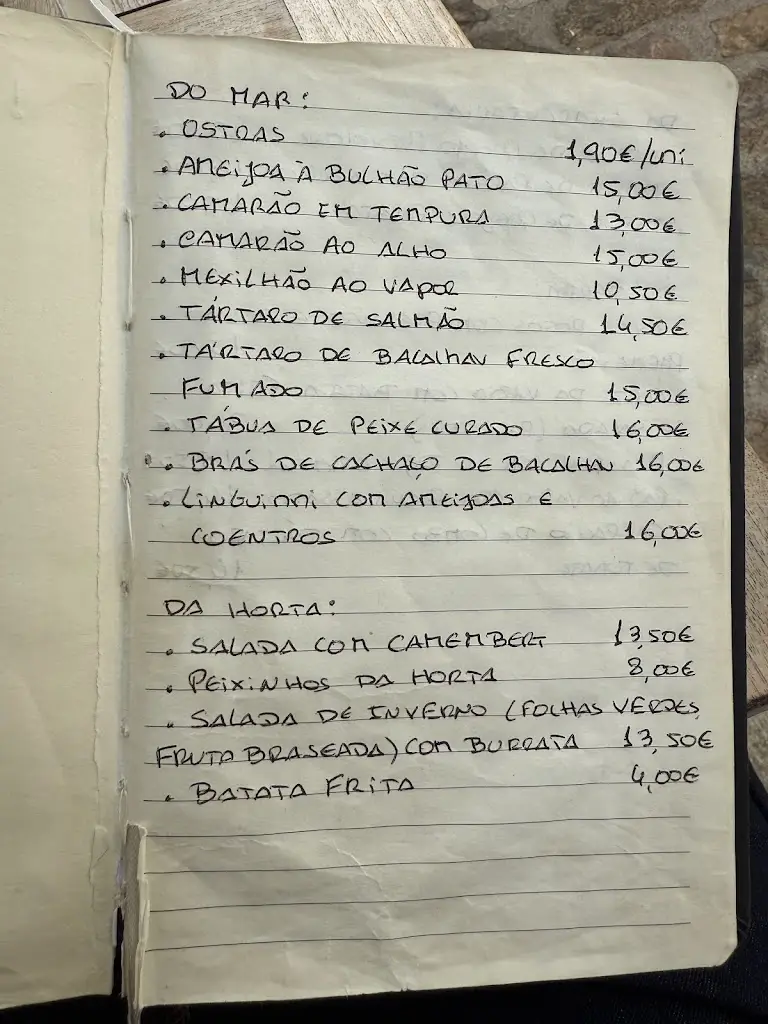 DO MAR:
• OSTRAS 1,90€/uni
• AMEIJOA À BULHÃO PATO 15,00€
• CAMARÃO EM TEMPURA 13,00€
• CAMARÃO AO ALHO 15,00€
• MEXILHÃO AO VAPOR 10,50€
• TÁRTARO DE SALMÃO 14,50€
• TÁRTARO DE BACALHAU FRESCO
FUMADO 15,00€
• TÁBUA DE PEIXE CURADO 16,00€
• BRÁS DE CACHAÇO DE BACALHAU 16,00€
• LINGUINNI COM AMEIJOAS E
COENTROS 16,00€
DA HORTA:
• SALADA COM CAMEMBERT 13,50€
• PEIXINHOS DA HORTA 8,00€
• SALADA DE INVERNO (FOLHAS VERDES,
FRUTA BRASEADA) COM BURRATA 13,50€
• BATATA FRITA 4,00€